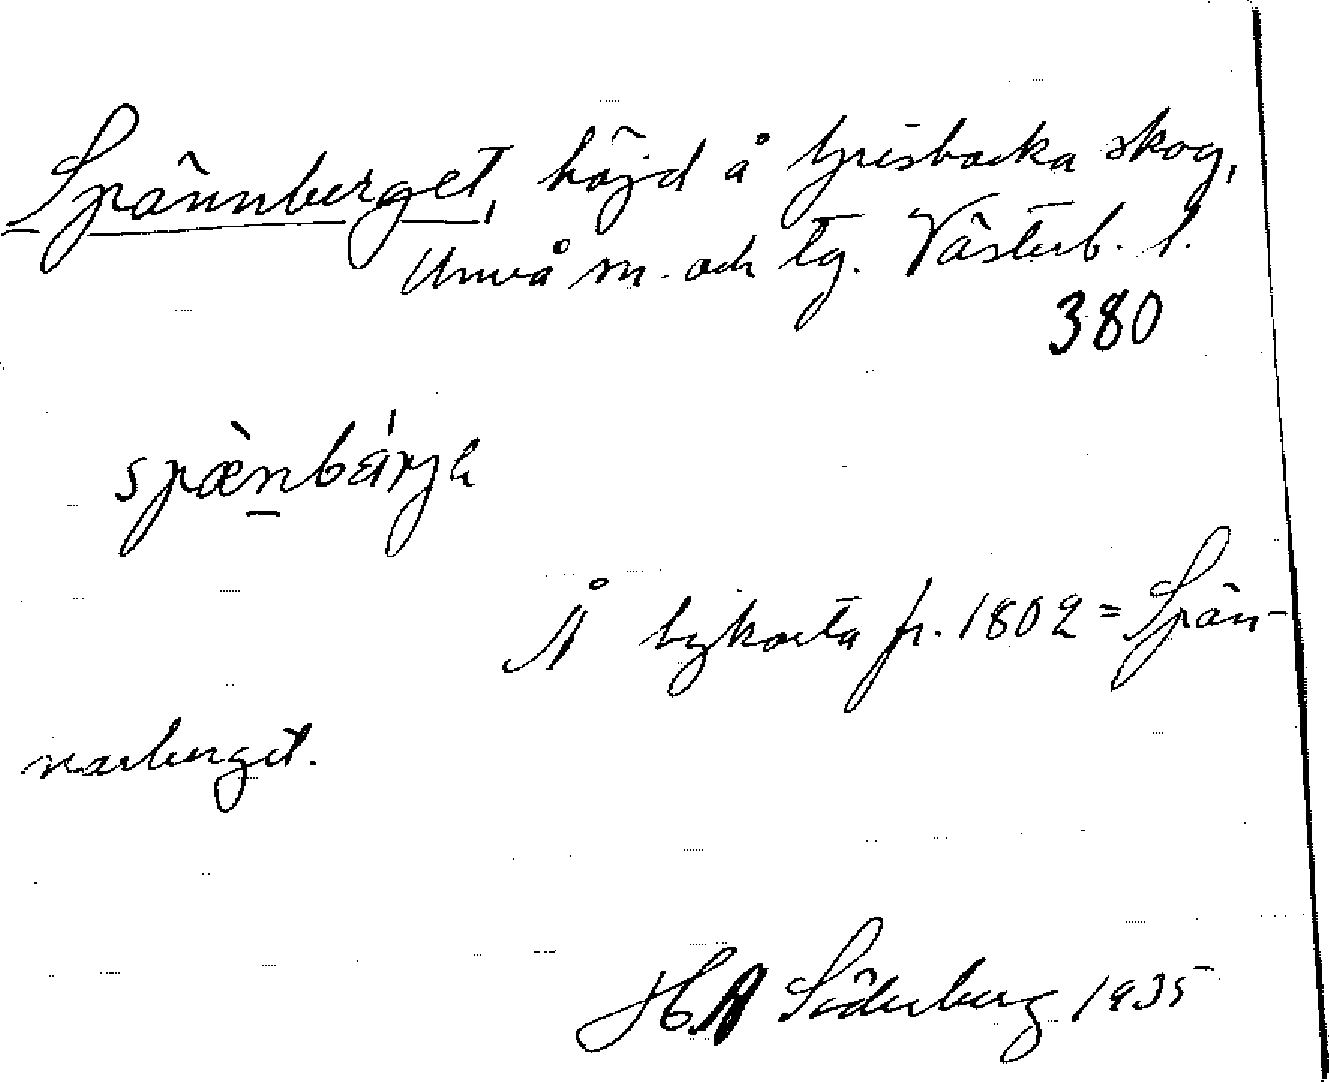 Spännberget, höjd å Grisbacka skog,
Umeå sn. och tg. Västerb. l.
380
spæ̀nbǽrjə
Å bykarta fr. 1802 = Spän-
narberget.
H A Söderberg 1935